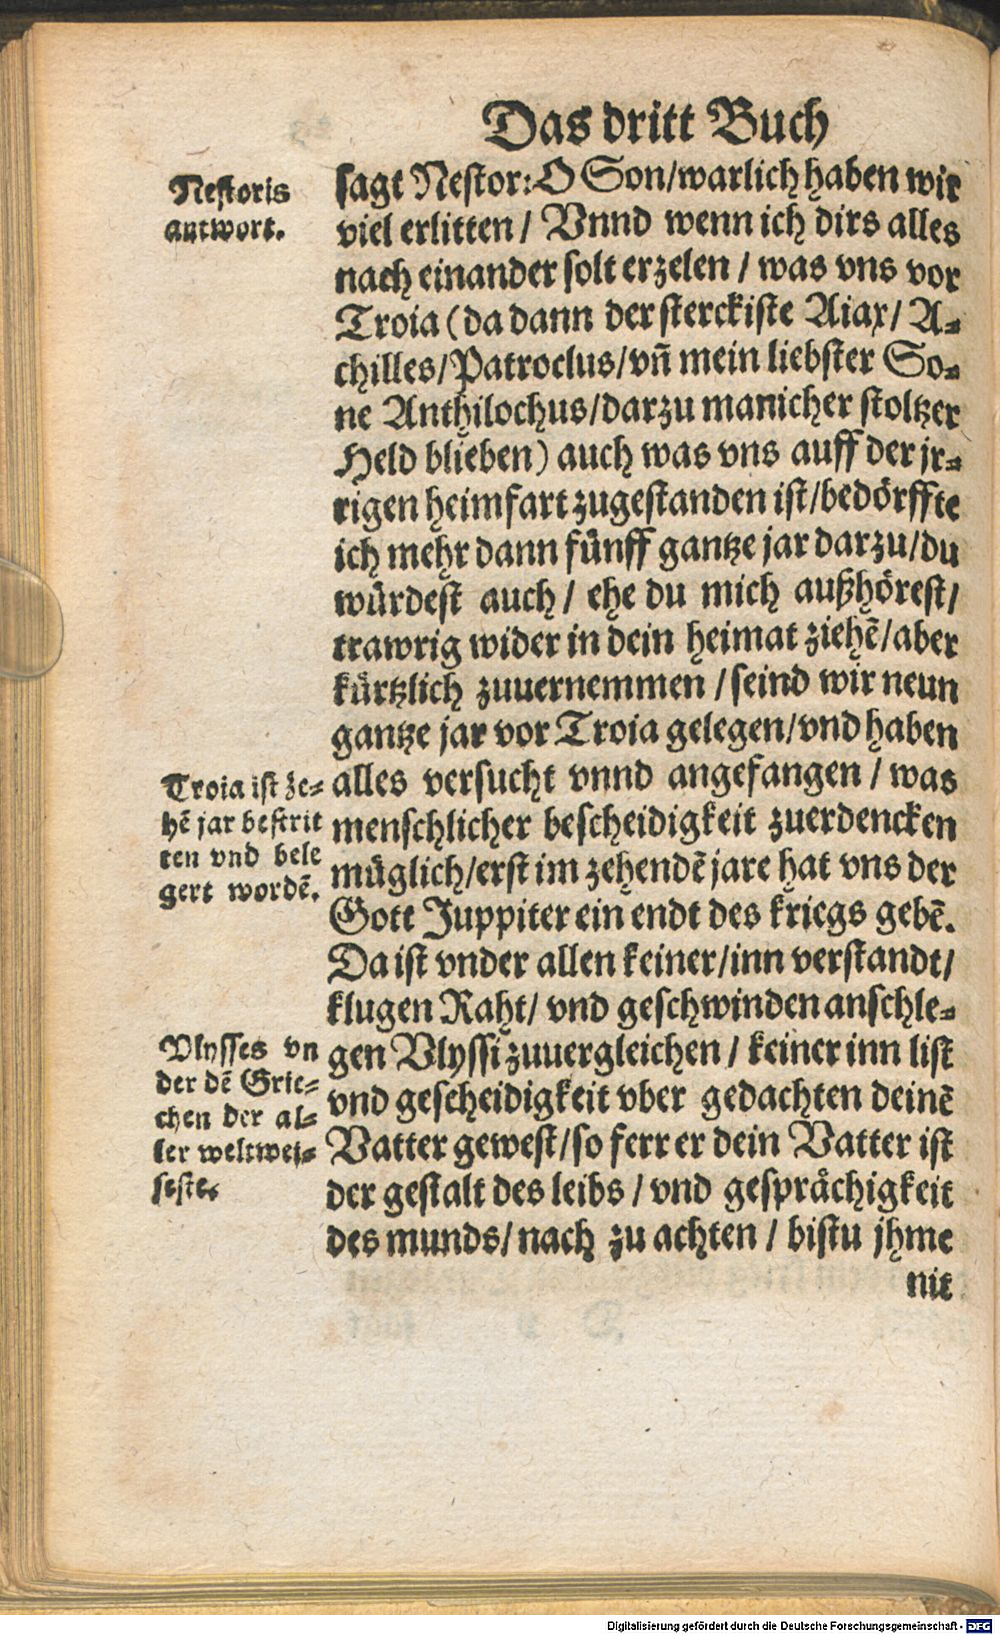 Das dritt Buch
Nestoris
antwort.
sagt Nestor: O Son/warlich haben wir
viel erlitten / Vnnd wenn ich dirs alles
nach einander solt erzelen / was vns vor
Troia (da dann der sterckiste Aiax/ A-
chilles/Patroclus/vñ mein liebster So-
ne Anthilochus/darzu manicher stoltzer
Held blieben) auch was vns auff der jr-
rigen heimfart zugestanden ist/bedörffte
ich mehr dann fünff gantze jar darzu/du
würdest auch / ehe du mich außhörest/
trawrig wider in dein heimat ziehẽ/aber
kürtzlich zuuernemmen / seind wir neun
gantze jar vor Troia gelegen/vnd haben
alles versucht vnnd angefangen / was
menschlicher bescheidigkeit zuerdencken
müglich/erst im zehendẽ jare hat vns der
Gott Juppiter ein endt des kriegs gebẽ.
Da ist vnder allen keiner/inn verstandt/
klugen Raht/ vnd geschwinden anschle-
gen Vlyssi zuuergleichen / keiner inn list
vnd gescheidigkeit vber gedachten deinẽ
Vatter gewest/so ferr er dein Vatter ist
der gestalt des leibs / vnd gesprächigkeit
des munds/ nach zu achten / bistu jhme
nit
Troia ist ze-
hẽ jar bestrit
ten vnd bele
gert wordẽ.
Vlysses vn
der dẽ Grie-
chen der al-
ler weltwei-
seste.
Digitalisierung gefördert durch die Deutsche Forschungsgemeinschaft - DFG